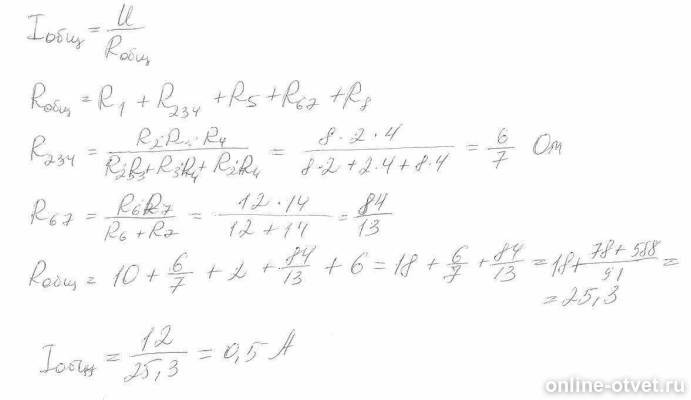 I общ = U / R общ
R общ = R1 + R234 + R5 + R67 + R8
R234 = R2·R3·R4 / R2·R3 + R3·R4 + R2·R4 = 8·2·4 / 8·2 + 2·4 + 8·4 = 6/7 Ом
R67 = R6·R7 / R6 + R7 = 12·14 / 12 + 14 = 84/13
R общ = 10 + 6/7 + 2 + 84/13 + 6 = 18 + 6/7 + 84/13 = 18 + 78 + 588 / 91 =
= 25,3
I общ = 12 / 25,3 = 0,5 А
online-otvet.ru